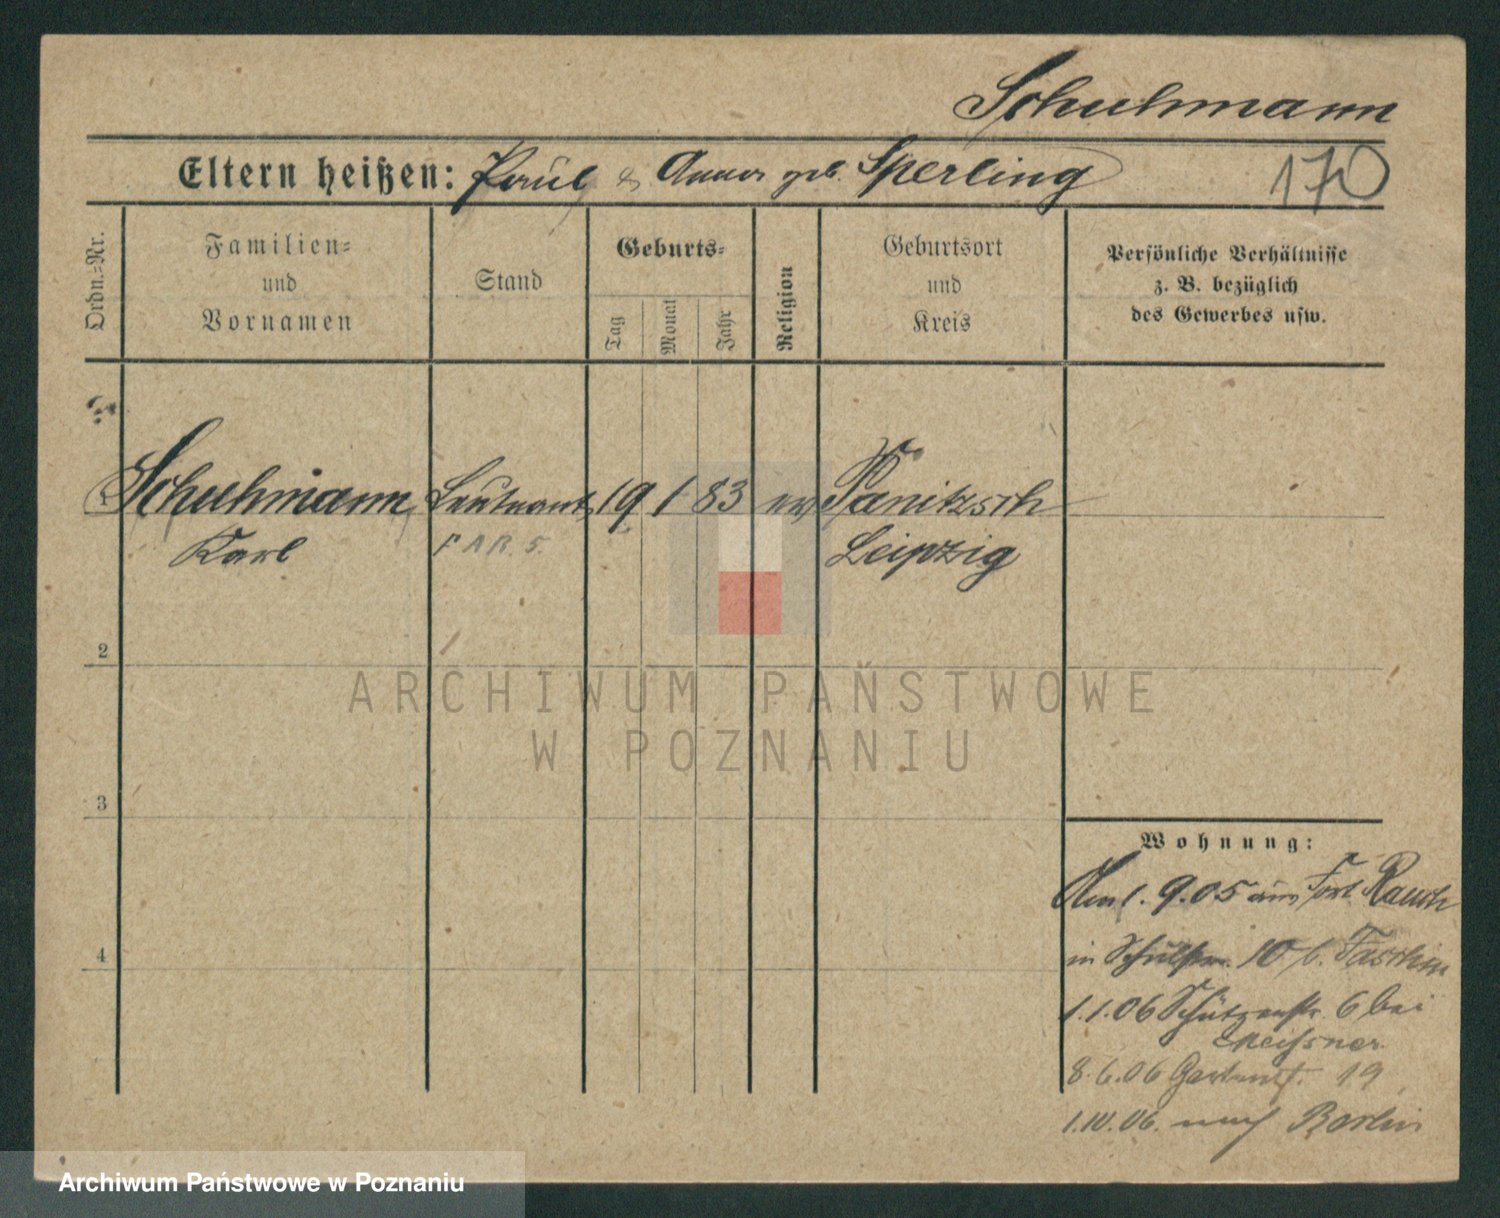 Schuhmann
Eltern heißen: Paul & Anna geb. Sperling
170
Ordn.-Nr.
Familien-
und
Vornamen
Stand
Geburts-
Tag
Monat
Jahr
Religion
Geburtsort
und
Kreis
Persönliche Verhältnisse
z. B. bezüglich
des Gewerbes usw.
1 Schuhmann Leutnant 19 1 83 ev Panitzsch
Karl F A R. 5. Leipzig
2
ARCHIWUM PAŃSTWOWE
W POZNANIU
3
Wohnung:
Am 1. 9. 05 aus Fort Rauch
in Schulstr. 10 b.
1. 1. 06 Schützenstr. 6 bei
Meissner
4
8. 6. 06 Gartenst. 19
1. 10. 06. nach Berlin
Archiwum Państwowe w Poznaniu